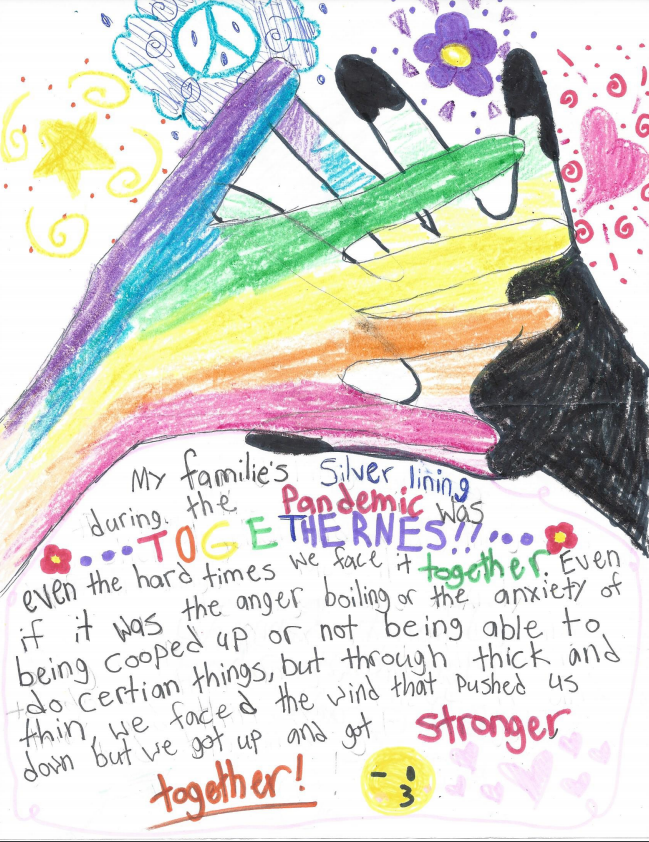 My familie's Silver lining
during. the Pandemic was
...TOGETHERNES!!...
even the hard times we face it together. Even
if it was the anger boiling or the anxiety of
being cooped up or not being able to
do certian things, but through thick and
thin, we faced the wind that pushed us
down but we got up and got stronger
together!